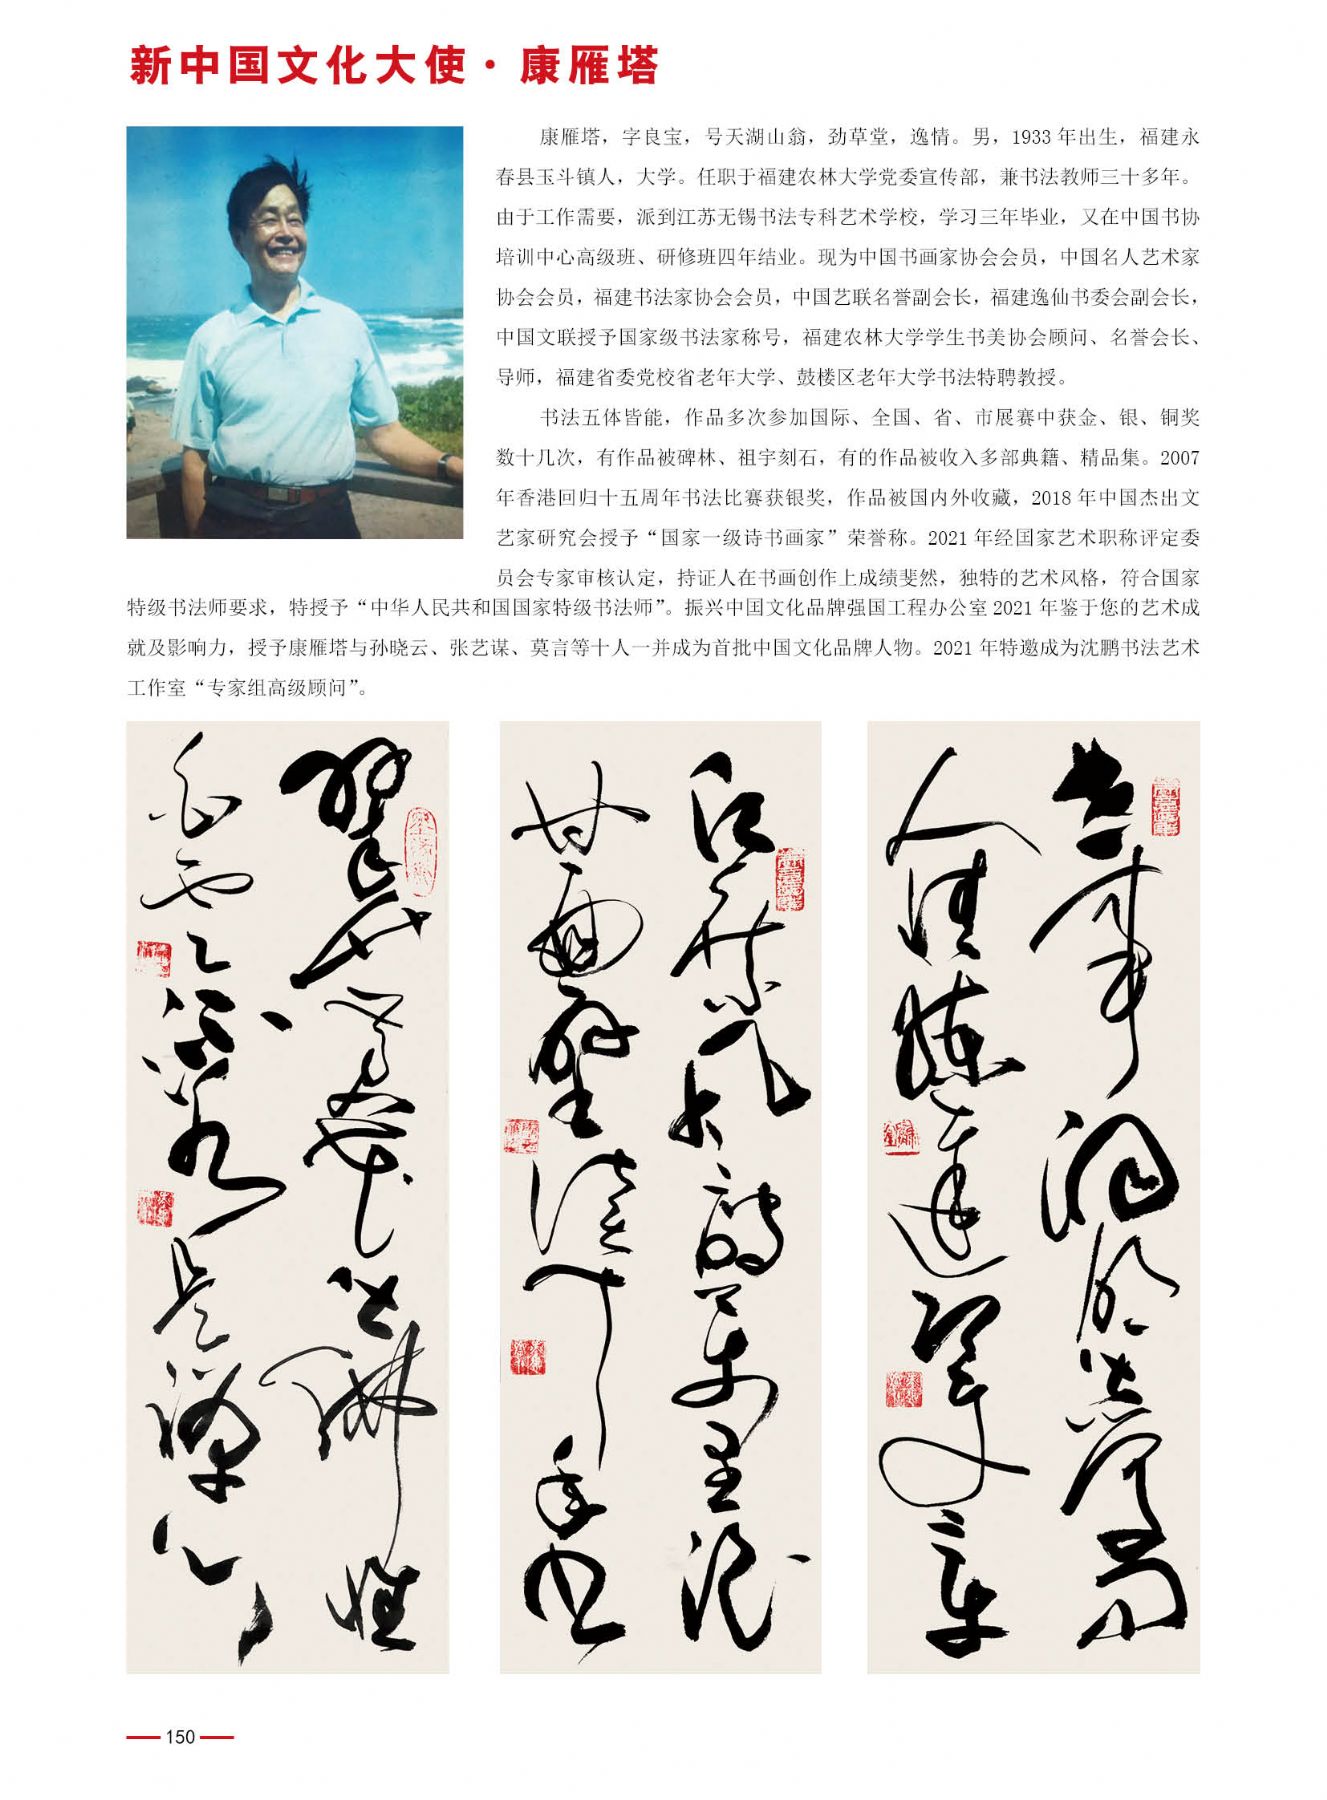 新中国文化大使·康雁塔
康雁塔，字良宝，号天湖山翁，劲草堂，逸情。男，1933 年出生，福建永
春县玉斗镇人，大学。任职于福建农林大学党委宣传部，兼书法教师三十多年。
由于工作需要，派到江苏无锡书法专科艺术学校，学习三年毕业，又在中国书协
培训中心高级班、研修班四年结业。现为中国书画家协会会员，中国名人艺术家
协会会员，福建书法家协会会员，中国艺联名誉副会长，福建逸仙书委会副会长，
中国文联授予国家级书法家称号，福建农林大学学生书美协会顾问、名誉会长、
导师，福建省委党校省老年大学、鼓楼区老年大学书法特聘教授。
书法五体皆能，作品多次参加国际、全国、省、市展赛中获金、银、铜奖
数十几次，有作品被碑林、祖宇刻石，有的作品被收入多部典籍、精品集。2007
年香港回归十五周年书法比赛获银奖，作品被国内外收藏，2018 年中国杰出文
艺家研究会授予“国家一级诗书画家”荣誉称。2021 年经国家艺术职称评定委
员会专家审核认定，持证人在书画创作上成绩斐然，独特的艺术风格，符合国家
特级书法师要求，特授予“中华人民共和国国家特级书法师”。振兴中国文化品牌强国工程办公室 2021 年鉴于您的艺术成
就及影响力，授予康雁塔与孙晓云、张艺谋、莫言等十人一并成为首批中国文化品牌人物。2021 年特邀成为沈鹏书法艺术
工作室“专家组高级顾问”。
世事洞明皆学问
人情练达即文章
翠竹黄花皆佛性
白云流水是禅心
150